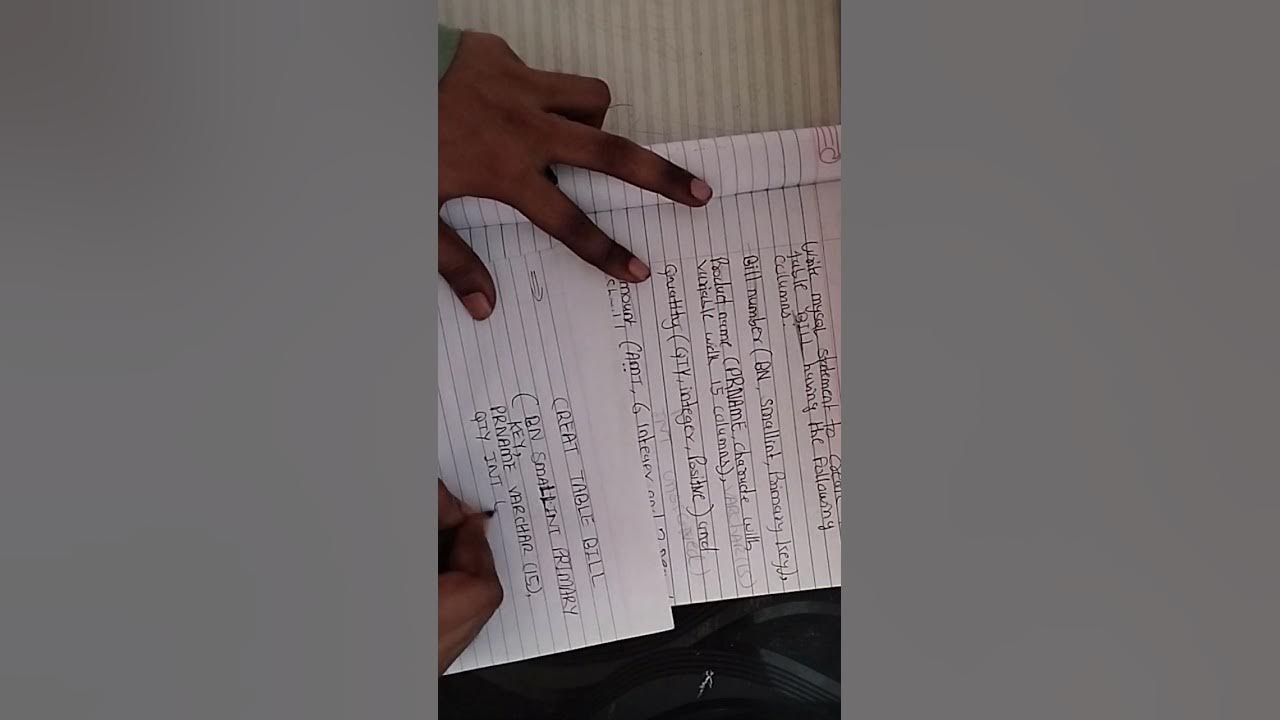 Write mysql statement to Create
table BILL having the following
columns.
Bill number (BN, smallint, Primary key),
Product name (PRNAME, characte with
variable with 15 columns), VARCHAR(15)
Quantity (QTY, integer, Positive) and
INT
mount (AMT, 6 integer and 2
=>
CREAT TABLE BILL
( BN SMALLINT PRIMARY
KEY,
PRNAME VARCHAR (15),
QTY INT